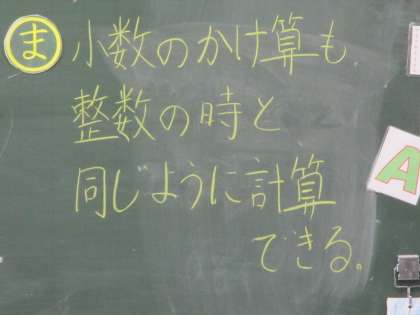 ま 小数のかけ算も、
整数の時と
同じように計算
できる。
A